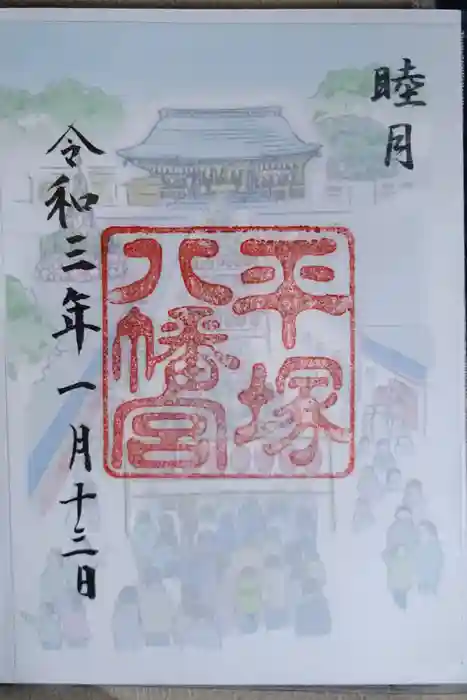 睦月
平塚
八幡宮
令和三年一月十二日